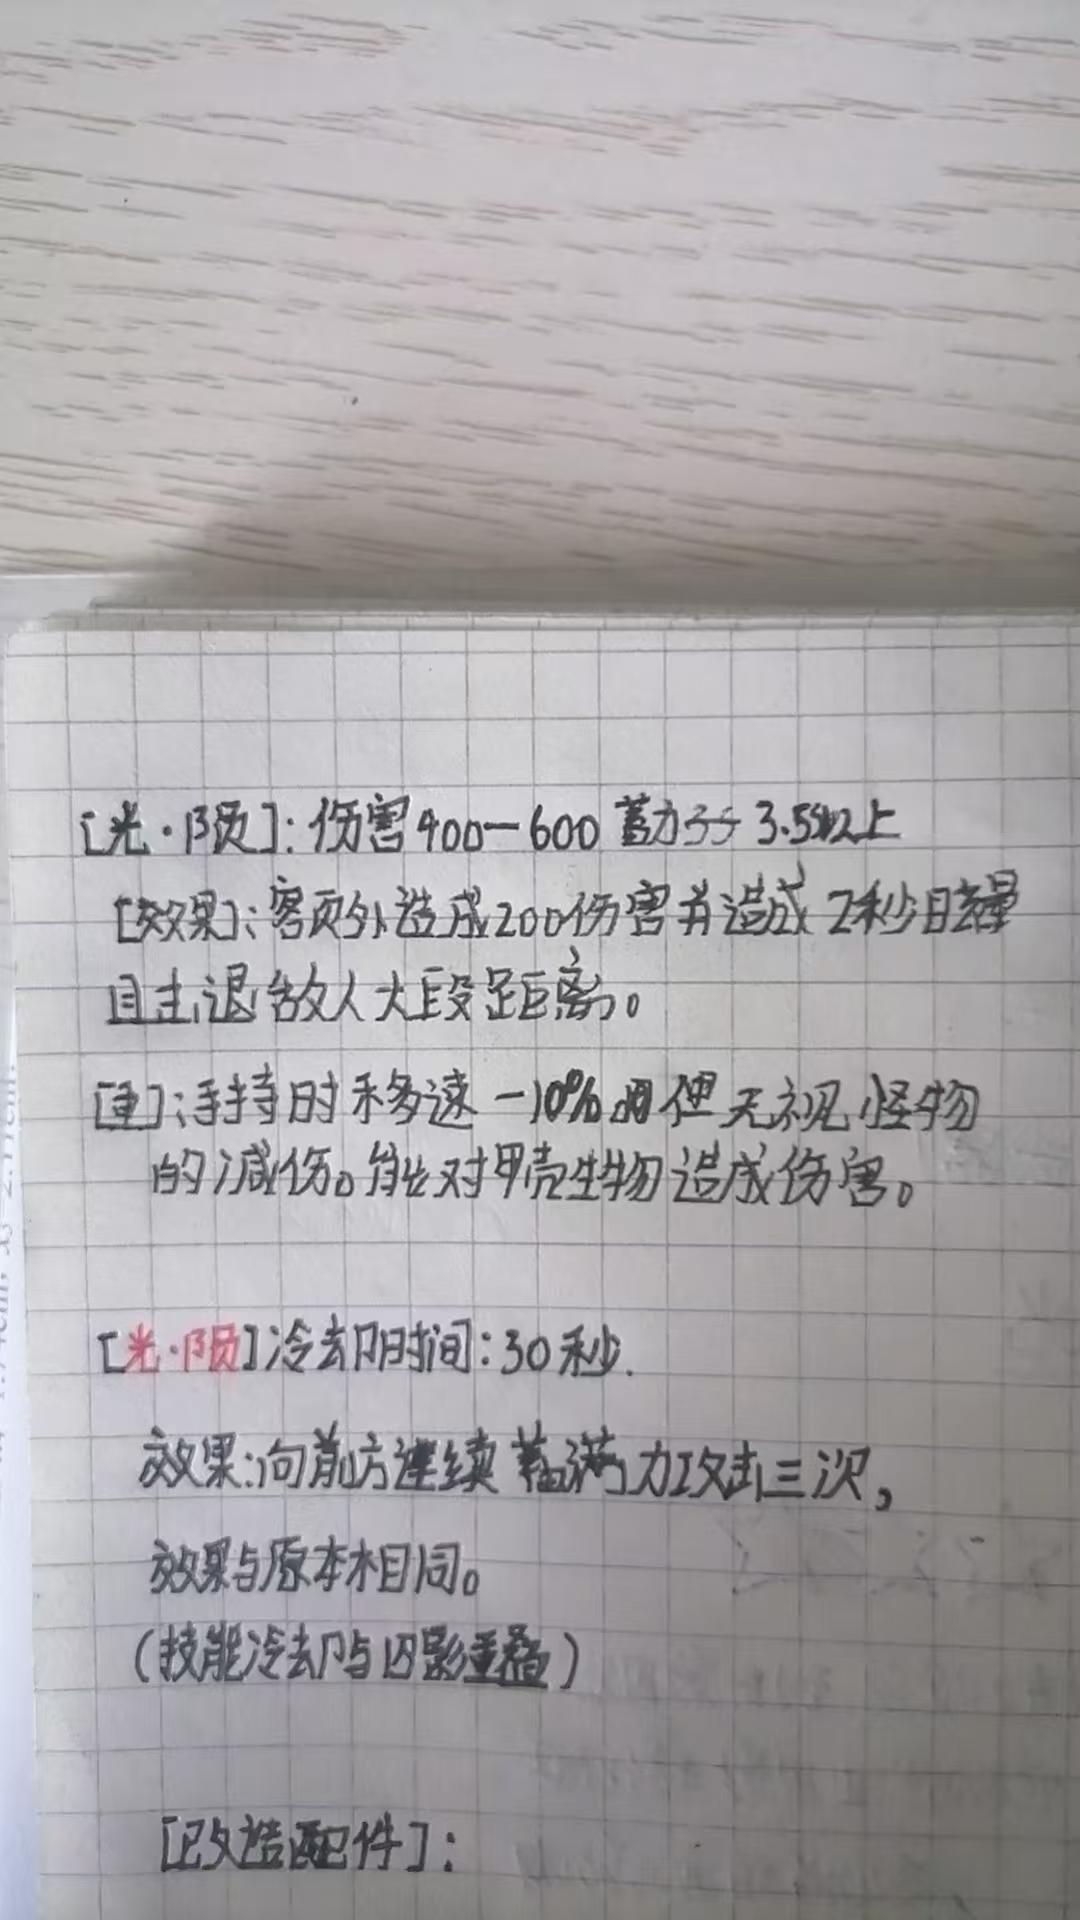 [光·陨]:伤害400—600 蓄力 3.5秒以上
[效果]:额外造成200伤害并造成2秒目眩晕
且击退敌人大段距离。
[重]:手持时移速-10% 但无视怪物
的减伤。能对甲壳生物造成伤害。
[光·陨]冷却时间:30秒.
效果:向前方连续蓄满力攻击三次,
效果与原本相同。
(技能冷却与囚影重叠)
[改造配件]: